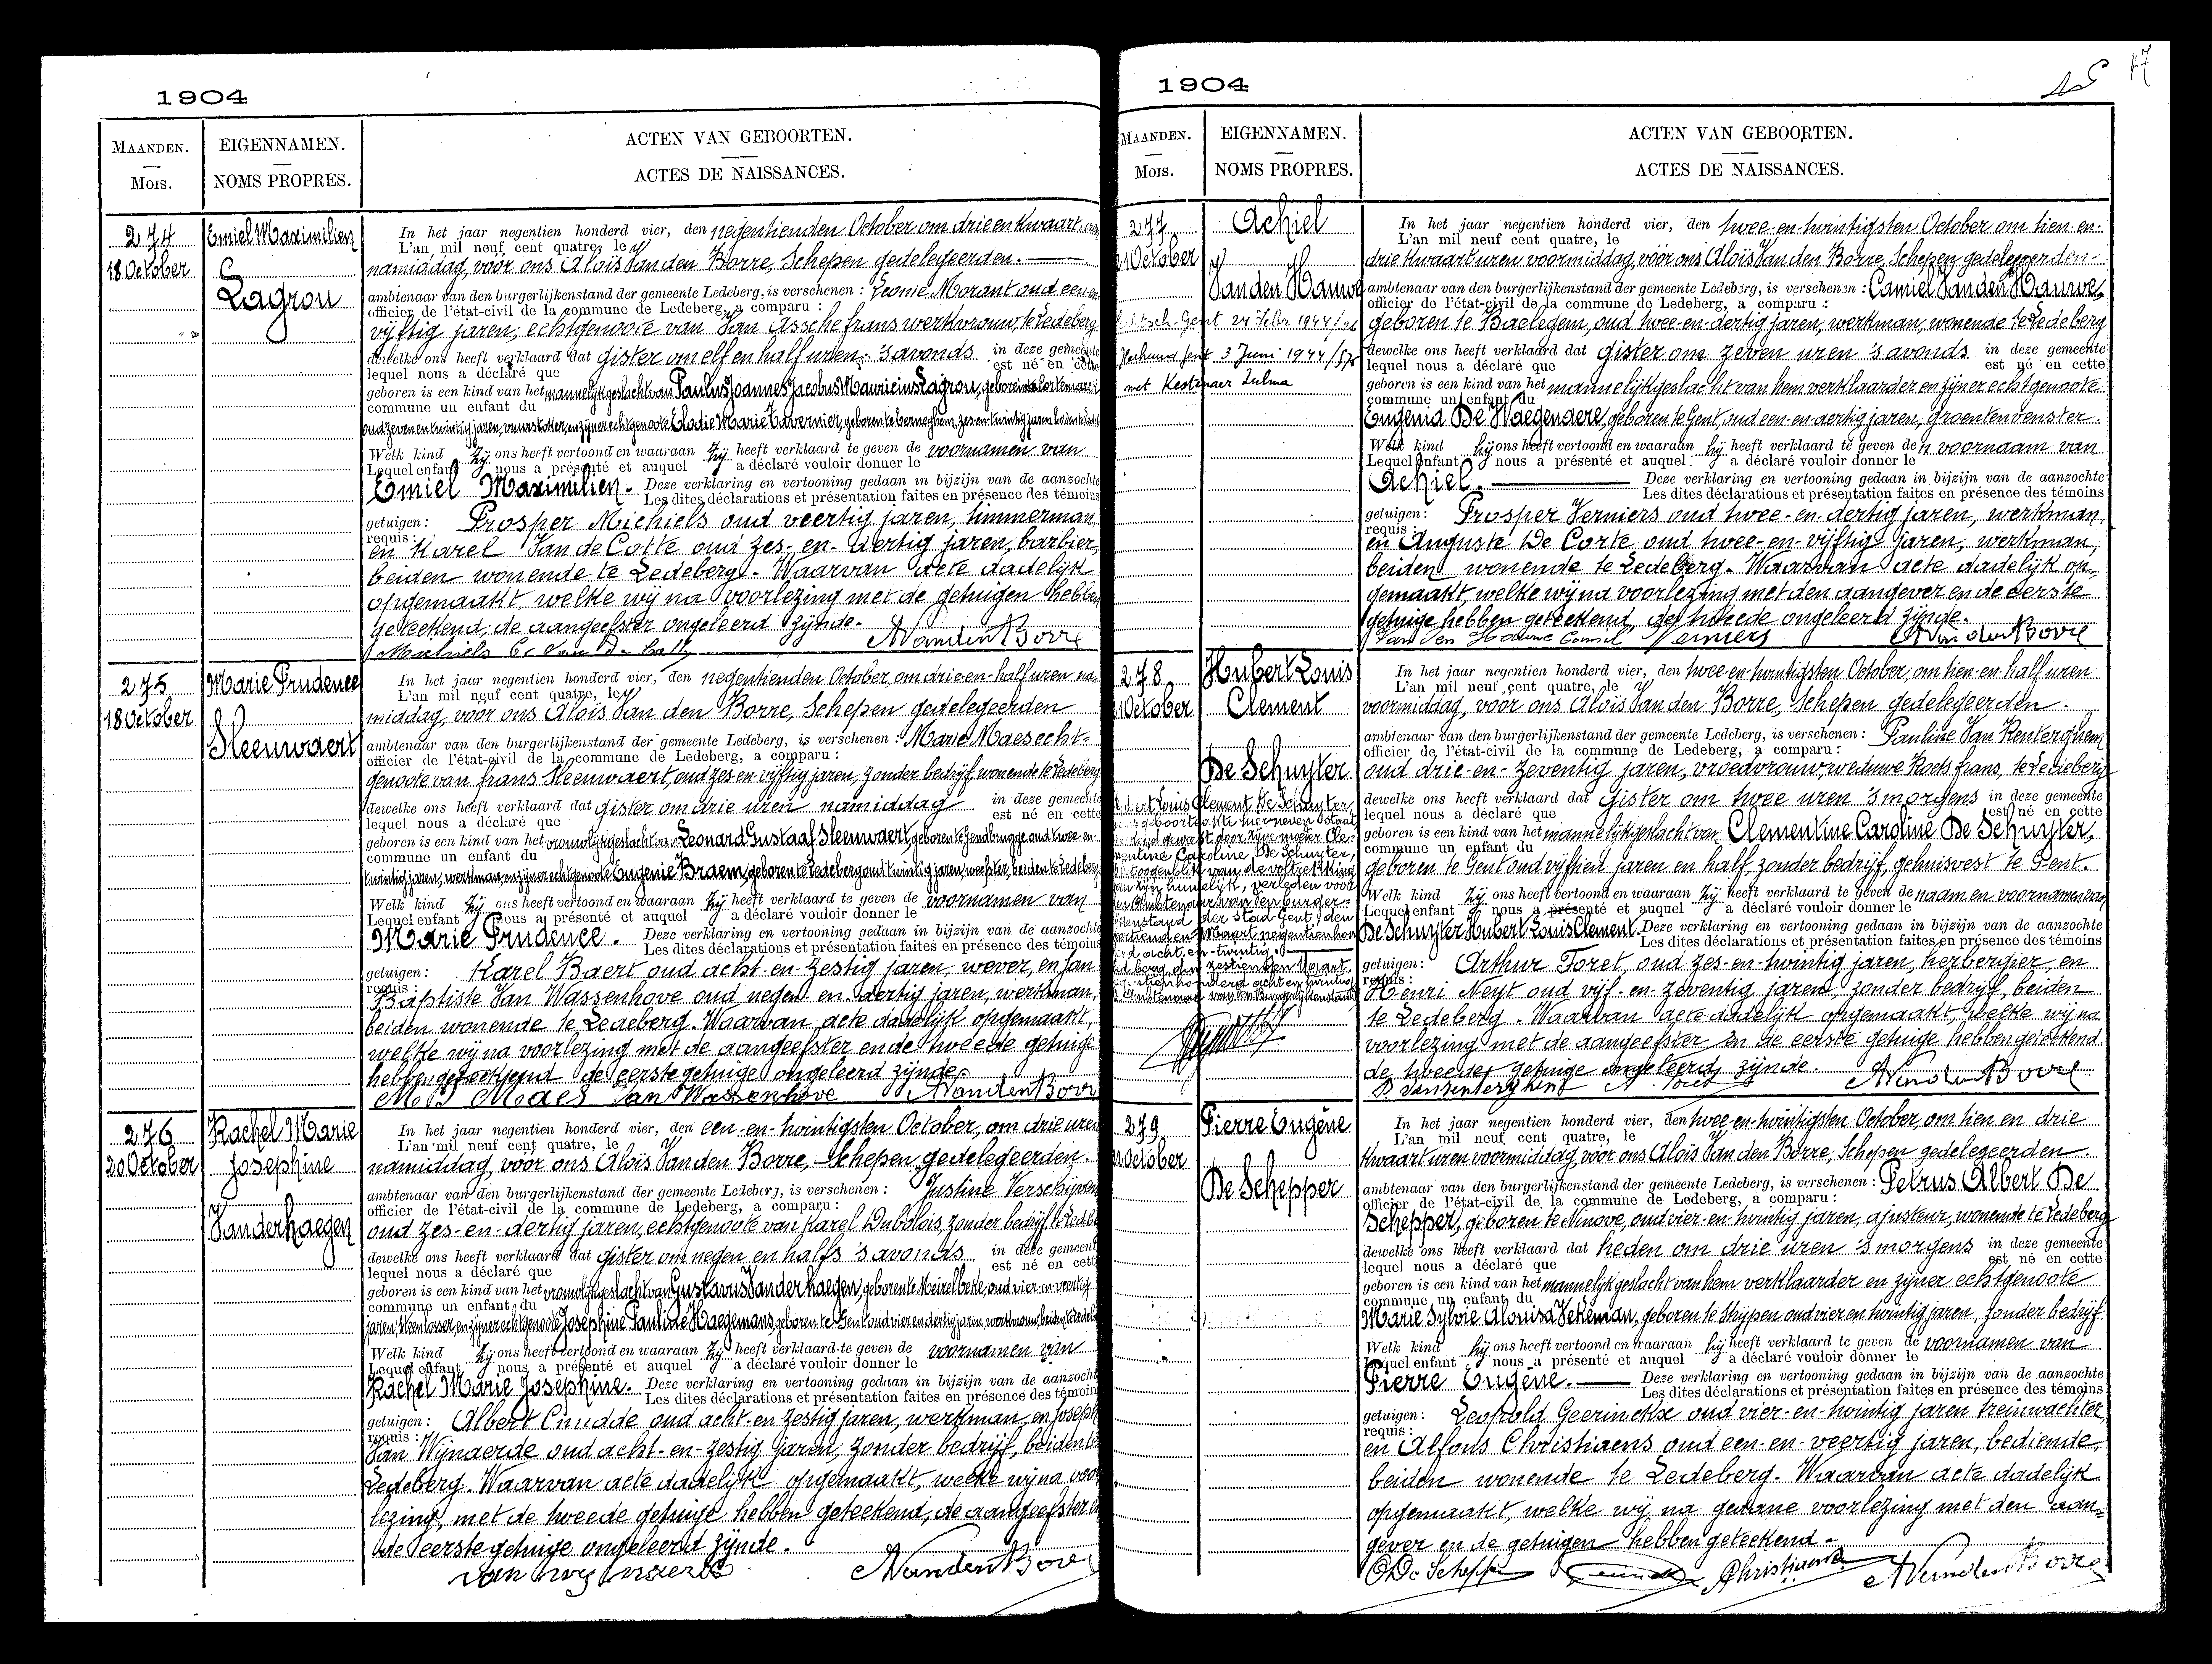 1904
MAANDEN.
Mois.
EIGENNAMEN.
NOMS PROPRES.
ACTEN VAN GEBOORTEN.
ACTES DE NAISSANCES.
274
18 October
Emiel Maximilien
Lagrou
In het jaar negentien honderd vier, den negentienden October om drie en kwaart
L'an mil neuf cent quatre, le
namiddag, vóór ons Aloïs Van den Borre, Schepen gedelegeerden.
ambtenaar van den burgerlijkenstand der gemeente Ledeberg, is verschenen : Leonie Morant oud een-en
officier de l'état-civil de la commune de Ledeberg, a comparu :
vijftig jaren, echtgenoote van Van Assche frans werkvrouw, te Ledeberg
dewelke ons heeft verklaard dat gister om elf en half uren 's avonds in deze gemeente
lequel nous a déclaré que est né en cette
geboren is een kind van het mannelijk geslacht van Paulus Joannes Jacobus Mauricius Lagrou, geboren te Cortemarck
commune un enfant du
oud zeven en twintig jaren, vuurstoker, en zijner echtgenoote Elodie Marie Tavernier, geboren te Eerneghem, zes-en-twintig jaren
Welk kind zij ons heeft vertoond en waaraan zij heeft verklaard te geven de voornamen van
Lequel enfant nous a présenté et auquel a déclaré vouloir donner le
Emiel Maximilien. Deze verklaring en vertooning gedaan in bijzijn van de aanzochte
Les dites déclarations et présentation faites en présence des témoins
getuigen : Prosper Michiels oud veertig jaren, timmerman
requis :
en Karel Van de Cotte oud zes-en-dertig jaren, barbier,
beiden wonende te Ledeberg. Waarvan acte dadelijk
opgemaakt, welke wij na voorlezing met de getuigen hebben
geteekend, de aangeefster ongeleerd zijnde.
Michiels A Van den Borre
275
18 October
Marie Prudence
Sleeuwaert
In het jaar negentien honderd vier, den negentienden October, om drie-en-half uren na-
L'an mil neuf cent quatre, le
middag, vóór ons Aloïs Van den Borre, Schepen gedelegeerden
ambtenaar van den burgerlijkenstand der gemeente Ledeberg, is verschenen : Marie Maes echt-
officier de l'état-civil de la commune de Ledeberg, a comparu :
genoote van frans Sleeuwaert, oud zes-en-vijftig jaren, zonder bedrijf, wonende te Ledeberg
dewelke ons heeft verklaard dat gister om drie uren namiddag in deze gemeente
lequel nous a déclaré que est né en cette
geboren is een kind van het vrouwelijk geslacht van Leonard Gustaaf Sleeuwaert, geboren te Gendbrugge oud twee-en-
commune un enfant du
twintig jaren, werkman, en zijner echtgenoote Eugenie Braem, geboren te Ledeberg oud twintig jaren, weefster, beiden te Ledeberg
Welk kind zij ons heeft vertoond en waaraan zij heeft verklaard te geven de voornamen van
Lequel enfant nous a présenté et auquel a déclaré vouloir donner le
Marie Prudence. Deze verklaring en vertooning gedaan in bijzijn van de aanzochte
Les dites déclarations et présentation faites en présence des témoins
getuigen : Karel Baert oud acht-en-zestig jaren, wever, en Jan
requis :
Baptiste Van Wassenhove oud negen-en-dertig jaren, werkman,
beiden wonende te Ledeberg. Waarvan acte dadelijk opgemaakt,
welke wij na voorlezing met de aangeefster en de tweede getuige
hebben geteekend de eerste getuige ongeleerd zijnde.
Maes Van Wassenhove A Van den Borre
276
20 October
Rachel Marie
Josephine
Vanderhaegen
In het jaar negentien honderd vier, den een-en-twintigsten October, om drie uren
L'an mil neuf cent quatre, le
namiddag, vóór ons Aloïs Van den Borre, Schepen gedelegeerden.
ambtenaar van den burgerlijkenstand der gemeente Ledeberg, is verschenen : Justine Verschijren
officier de l'état-civil de la commune de Ledeberg, a comparu :
oud zes-en-dertig jaren, echtgenoote van Karel Dubolois, zonder bedrijf, te
dewelke ons heeft verklaard dat gister om negen en halfs 's avonds in deze gemeent
lequel nous a déclaré que est né en cett
geboren is een kind van het vrouwelijk geslacht van Gustavus Vanderhaegen, geboren te Meirelbeke, oud vier-en-veertig
commune un enfant du
jaren, steenlosser, en zijner echtgenoote Josephine Pauline Haegemans, geboren te Gent oud vier en dertig jaren, werkvrouw, beiden te
Welk kind zij ons heeft vertoond en waaraan zij heeft verklaard te geven de voornamen van
Lequel enfant nous a présenté et auquel a déclaré vouloir donner le
Rachel Marie Josephine. Deze verklaring en vertooning gedaan in bijzijn van de aanzocht
Les dites déclarations et présentation faites en présence des témoin
getuigen : Albert Cnudde oud acht-en zestig jaren, werkman, en Joseph
requis :
Van Wijnaerde oud acht-en-zestig jaren, zonder bedrijf, beiden te
Ledeberg. Waarvan acte dadelijk opgemaakt, welke wij na voor
lezing, met de tweede getuige hebben geteekend, de aangeefster en
de eerste getuige ongeleerd zijnde.
A Van den Borre
1904
17
MAANDEN.
Mois.
EIGENNAMEN.
NOMS PROPRES.
ACTEN VAN GEBOORTEN.
ACTES DE NAISSANCES.
277
21 October
Achiel
Van den Hauwe
Gent 24 Febr 1944
Gent 3 Juni 1944
met Kestenaer Zulma
In het jaar negentien honderd vier, den twee-en-twintigsten October om tien-en-
L'an mil neuf cent quatre, le
drie kwaart uren voormiddag, vóór ons Aloïs Van den Borre, Schepen gedelegeerden-
ambtenaar van den burgerlijkenstand der gemeente Ledeberg, is verschenen : Camiel Van den Hauwe,
officier de l'état-civil de la commune de Ledeberg, a comparu :
geboren te Baelegem, oud twee-en-dertig jaren, werkman, wonende te Ledeberg
dewelke ons heeft verklaard dat gister om zeven uren 's avonds in deze gemeente
lequel nous a déclaré que est né en cette
geboren is een kind van het mannelijk geslacht van hem verklaarder en zijner echtgenoote
commune un enfant du
Eugenia De Waegenaere, geboren te Gent, oud een-en-dertig jaren, groentenvenster.
Welk kind hij ons heeft vertoond en waaraan hij heeft verklaard te geven den voornaam van
Lequel enfant nous a présenté et auquel a déclaré vouloir donner le
Achiel. Deze verklaring en vertooning gedaan in bijzijn van de aanzochte
Les dites déclarations et présentation faites en présence des témoins
getuigen : Prosper Verniers oud twee-en-dertig jaren, werkman,
requis :
en Auguste De Corte oud twee-en-vijftig jaren, werkman,
beiden wonende te Ledeberg. Waarvan acte dadelijk op-
gemaakt, welke wij na voorlezing met den aangever en de eerste
getuige hebben geteekend, de tweede ongeleerd zijnde.
Van den Hauwe Camiel Verniers A Van den Borre
278
21 October
Hubert Louis
Clement
De Schuyter
Hubert Louis Clement De Schuyter,
mentine Caroline De Schuyter,
zijn huwelijk, verleden voor
der stad Gent, den
Maart negentienhon
derd acht-en-twintig.
zestienden Maart
In het jaar negentien honderd vier, den twee-en-twintigsten October, om tien-en-half uren
L'an mil neuf cent quatre, le
voormiddag, vóór ons Aloïs Van den Borre, Schepen gedelegeerden.
ambtenaar van den burgerlijkenstand der gemeente Ledeberg, is verschenen : Pauline Van Renterghem
officier de l'état-civil de la commune de Ledeberg, a comparu :
oud drie-en-zeventig jaren, vroedvrouw, weduwe Roels frans, te Ledeberg
dewelke ons heeft verklaard dat gister om twee uren 's morgens in deze gemeente
lequel nous a déclaré que est né en cette
geboren is een kind van het mannelijk geslacht van Clementine Caroline De Schuyter,
commune un enfant du
geboren te Gent oud vijftien jaren en half, zonder bedrijf, gehuisvest te Gent.
Welk kind zij ons heeft vertoond en waaraan zij heeft verklaard te geven de naam en voornamen van
Lequel enfant nous a présenté et auquel a déclaré vouloir donner le
De Schuyter Hubert Louis Clement. Deze verklaring en vertooning gedaan in bijzijn van de aanzochte
Les dites déclarations et présentation faites en présence des témoins
getuigen : Arthur Foret, oud zes-en-twintig jaren, herbergier, en
requis :
Henri Neyt oud vijf-en-zeventig jaren, zonder bedrijf, beiden
te Ledeberg. Waarvan acte dadelijk opgemaakt, welke wij na
voorlezing met de aangeefster en de eerste getuige hebben geteekend
de tweede getuige ongeleerd zijnde.
A Van den Borre
279
22 October
Pierre Eugène
De Schepper
In het jaar negentien honderd vier, den twee-en-twintigsten October, om tien en drie
L'an mil neuf cent quatre, le
kwaart uren voormiddag, vóór ons Aloïs Van den Borre, Schepen gedelegeerden.
ambtenaar van den burgerlijkenstand der gemeente Ledeberg, is verschenen : Petrus Albert De
officier de l'état-civil de la commune de Ledeberg, a comparu :
Schepper, geboren te Ninove, oud vier-en-twintig jaren, ajusteur, wonende te Ledeberg
dewelke ons heeft verklaard dat heden om drie uren 's morgens in deze gemeente
lequel nous a déclaré que est né en cette
geboren is een kind van het mannelijk geslacht van hem verklaarder en zijner echtgenoote
commune un enfant du
Marie Sylvie Alouisa Vekeman, geboren te Slijpen oud vier en twintig jaren, zonder bedrijf.
Welk kind hij ons heeft vertoond en waaraan hij heeft verklaard te geven de voornamen van
Lequel enfant nous a présenté et auquel a déclaré vouloir donner le
Pierre Eugène. Deze verklaring en vertooning gedaan in bijzijn van de aanzochte
Les dites déclarations et présentation faites en présence des témoins
getuigen : Leopold Geerinckx oud vier-en-twintig jaren treinwachter
requis :
en Alfons Christiaens oud een-en-veertig jaren, bediende,
beiden wonende te Ledeberg. Waarvan acte dadelijk
opgemaakt, welke wij, na gedane voorlezing met den aan-
gever en de getuigen hebben geteekend.
De Schepper Christiaens A Van den Borre